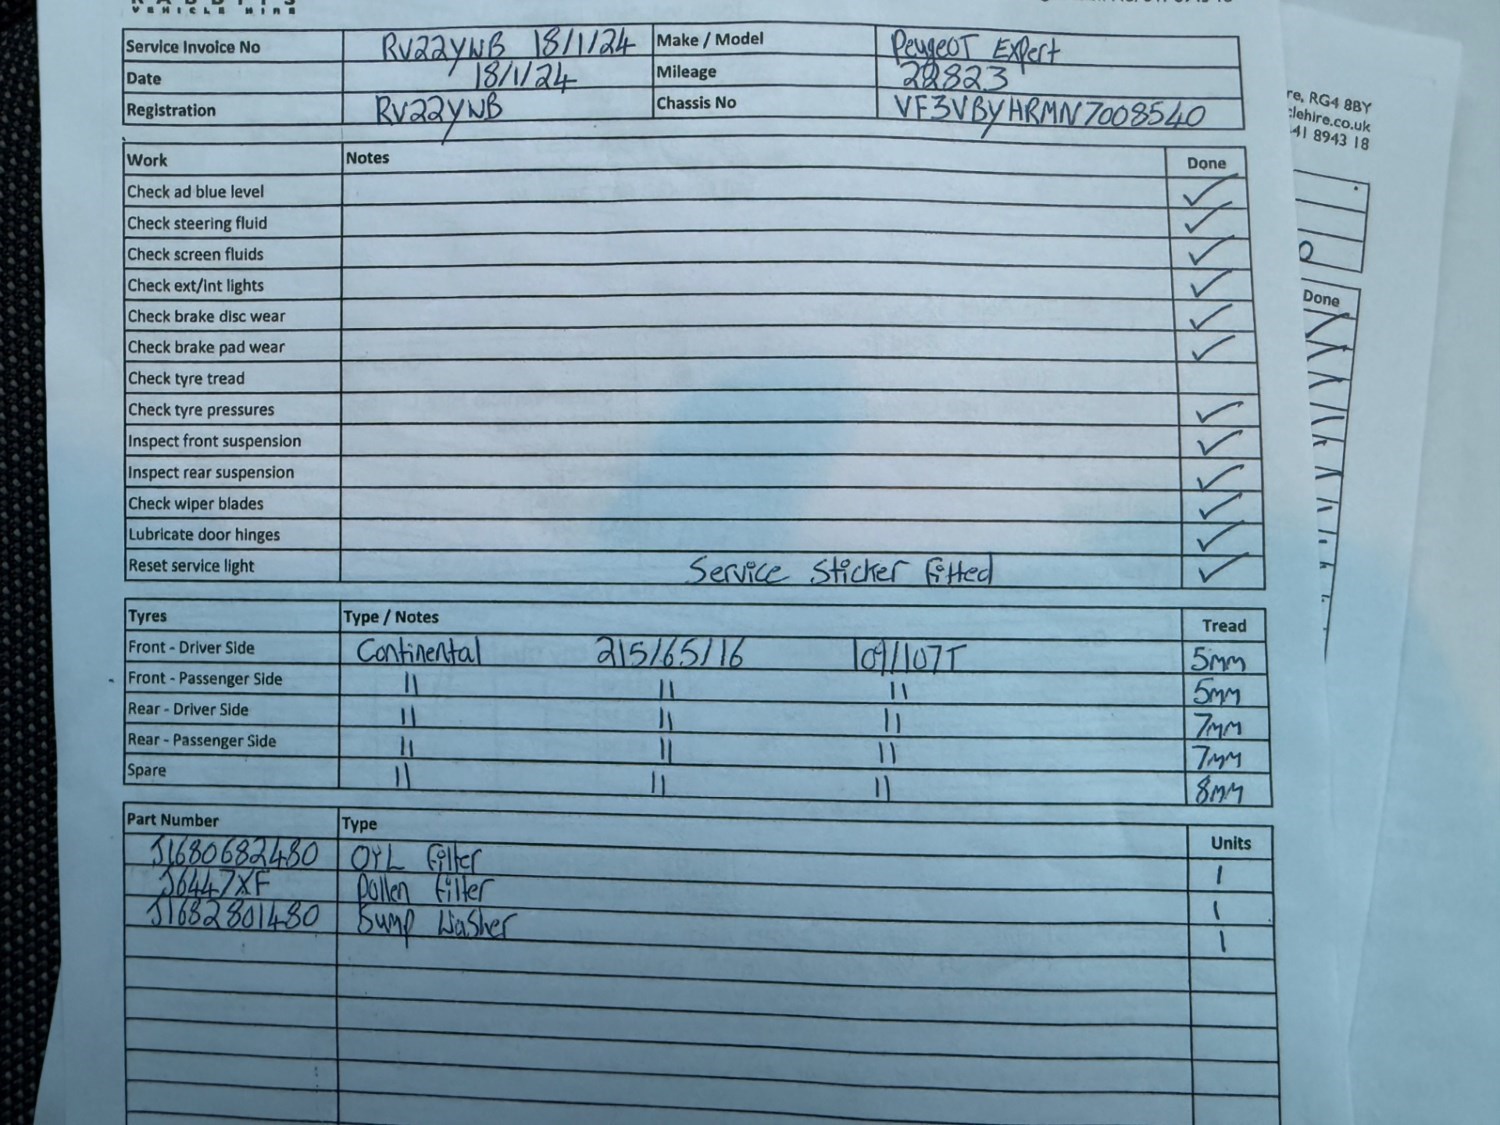 VEHICLE HIRE
Service Invoice No RV22YNB 18/1/24 Make / Model Peugeot Expert
Date 18/1/24 Mileage 22823
Registration RV22YNB Chassis No VF3VBYHRMN7008540
Work Notes Done
Check ad blue level ✓
Check steering fluid ✓
Check screen fluids ✓
Check ext/int lights ✓
Check brake disc wear ✓
Check brake pad wear ✓
Check tyre tread
Check tyre pressures ✓
Inspect front suspension ✓
Inspect rear suspension ✓
Check wiper blades ✓
Lubricate door hinges ✓
Reset service light Service Sticker fitted ✓
Tyres Type / Notes Tread
Front - Driver Side Continental 215/65/16 109/107T 5mm
Front - Passenger Side 11 11 11 5mm
Rear - Driver Side 11 11 11 7mm
Rear - Passenger Side 11 11 11 7mm
Spare 11 11 11 8mm
Part Number Type Units
J1680682480 OYL filter 1
J6447XF pollen filter 1
J1682801480 Sump Washer 1
re, RG4 8BY
clehire.co.uk
41 8943 18
Done